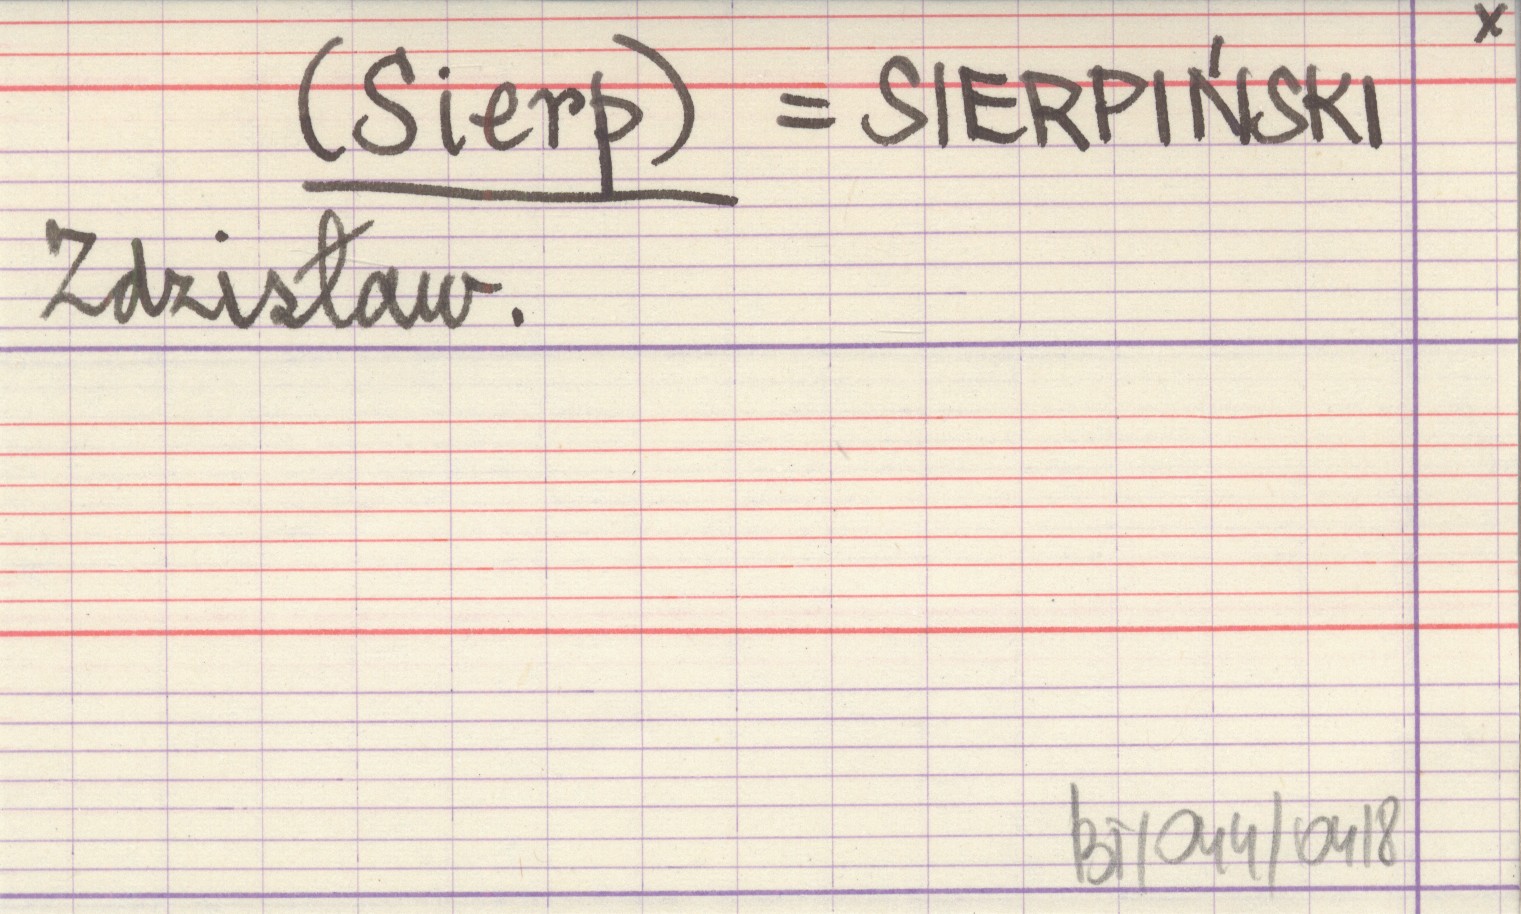 x
(Sierp) = SIERPIŃSKI
Zdzisław.
BI/044/0418